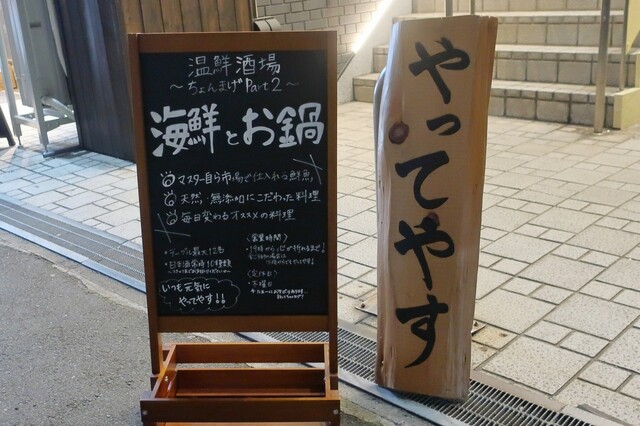 温鮮酒場
～ちょんまげPart2～
海鮮とお鍋
マスター自ら市場で仕入れる鮮魚
天然・無添加にこだわった料理
毎日変わるオススメの料理
・テーブル最大12名
・日本酒常時10種類
いつも元気に
やってやす!!
〈営業時間〉
・19時から心が折れるまで!
〈定休日〉
・木曜日
やってやす